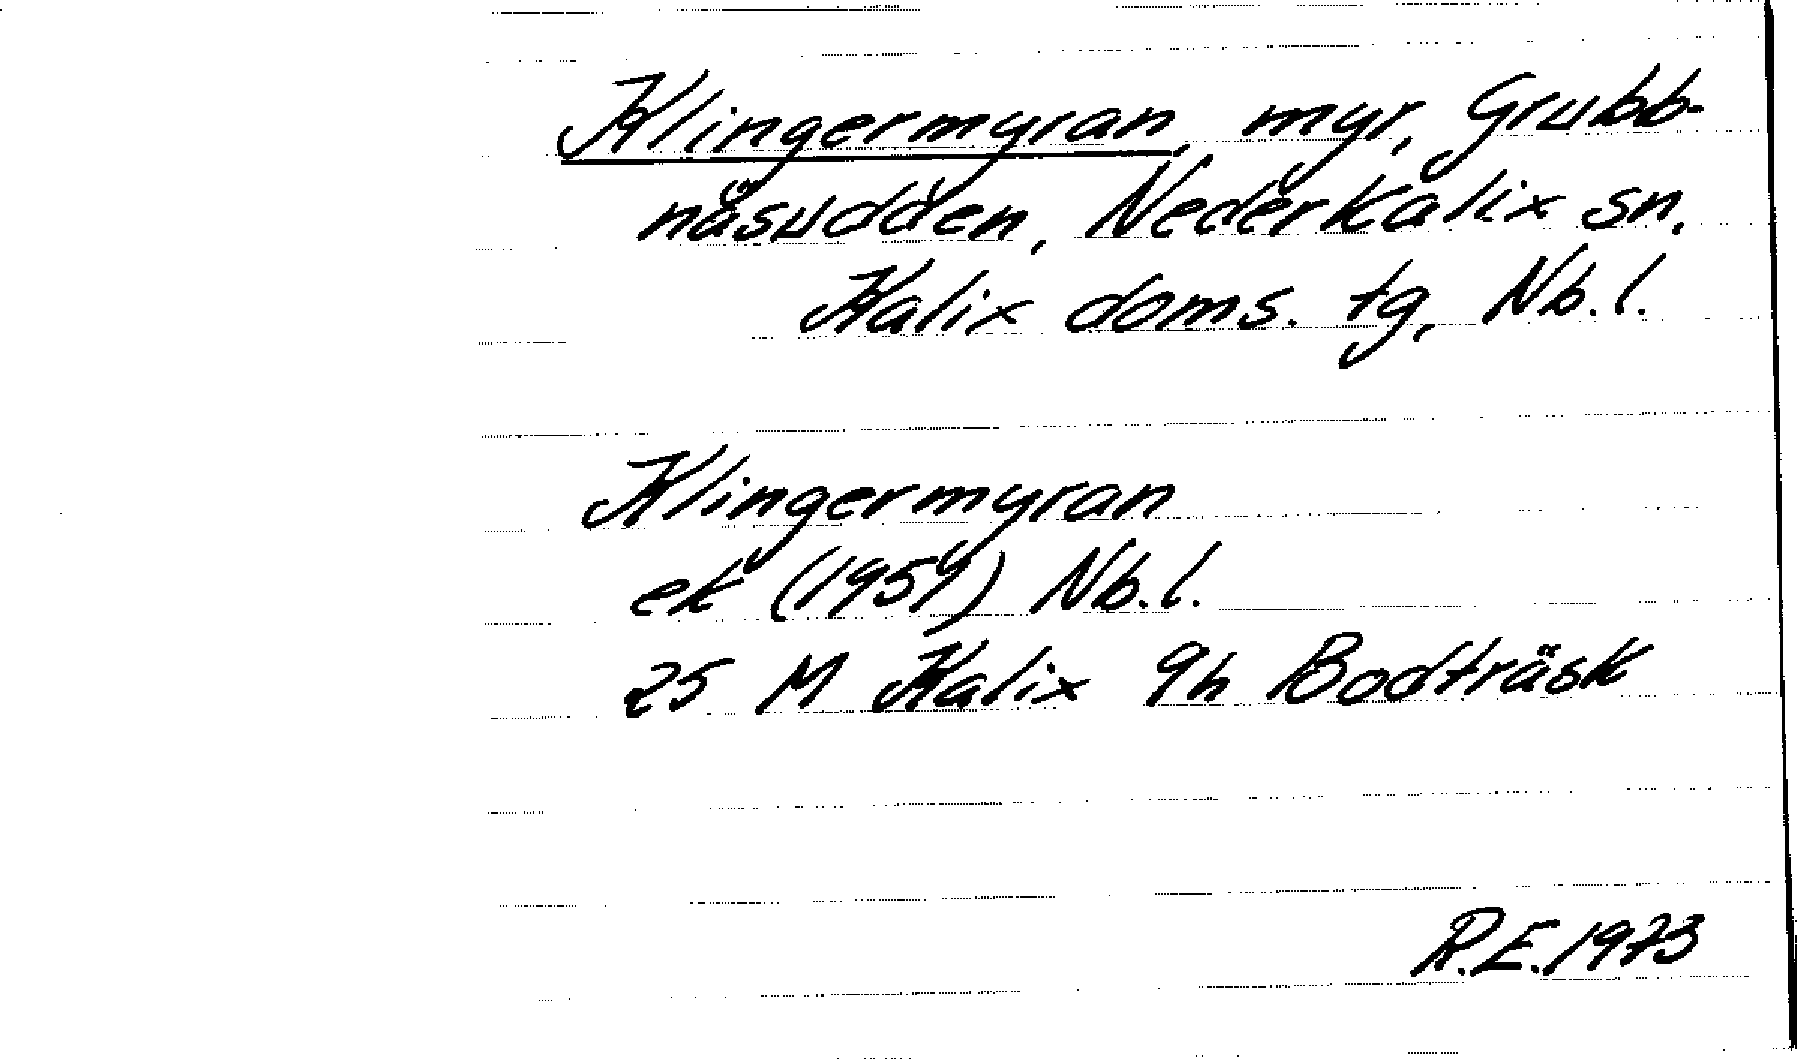 Klingermyran, myr, Grubb-
näsudden, Nederkalix sn,
Kalix doms. tg, Nb.l.
Klingermyran
ek (1959) Nb.l.
25 M Kalix 9h Bodträsk
R.E.1973